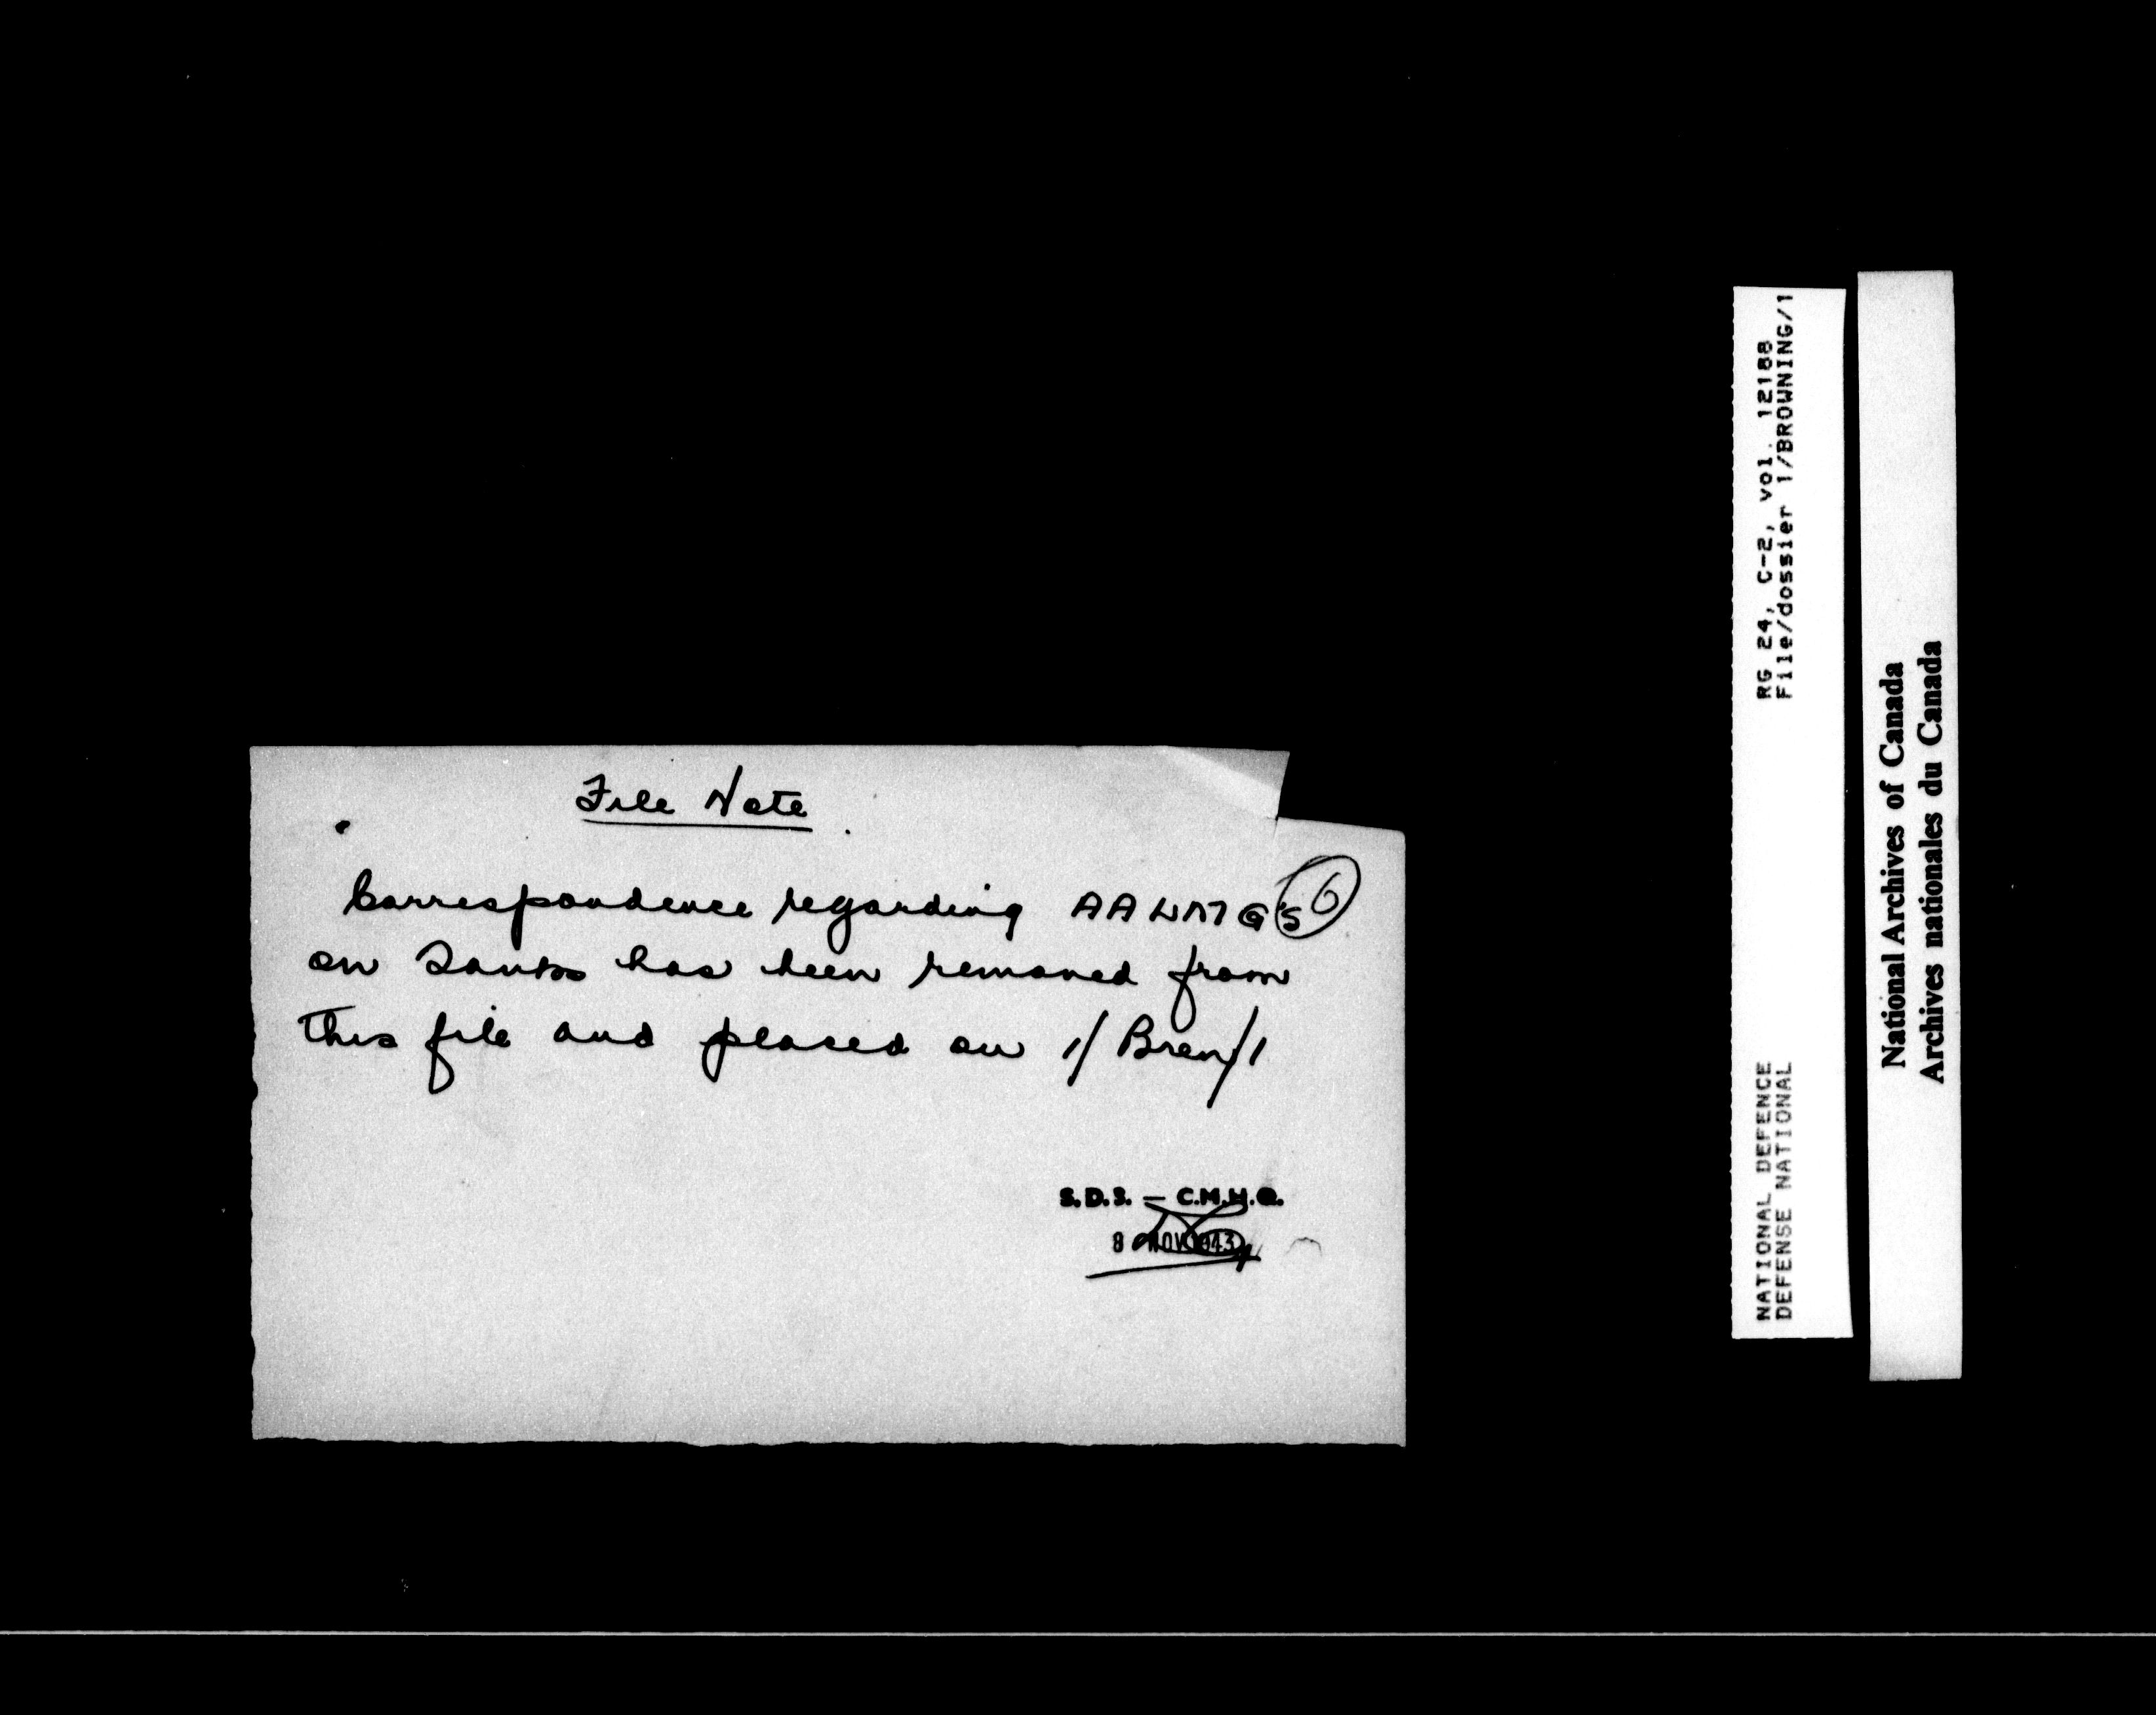 File Note
6
Correspondence regarding AA LMG's
on Tanks has been removed from
this file and placed on 1/Bren/1
S.D.S. — C.M.H.Q.
8 NOV 1943
RG 24, C-2, vol. 12188
File/dossier 1/BROWNING/1
NATIONAL DEFENCE
DEFENSE NATIONAL
National Archives of Canada
Archives nationales du Canada